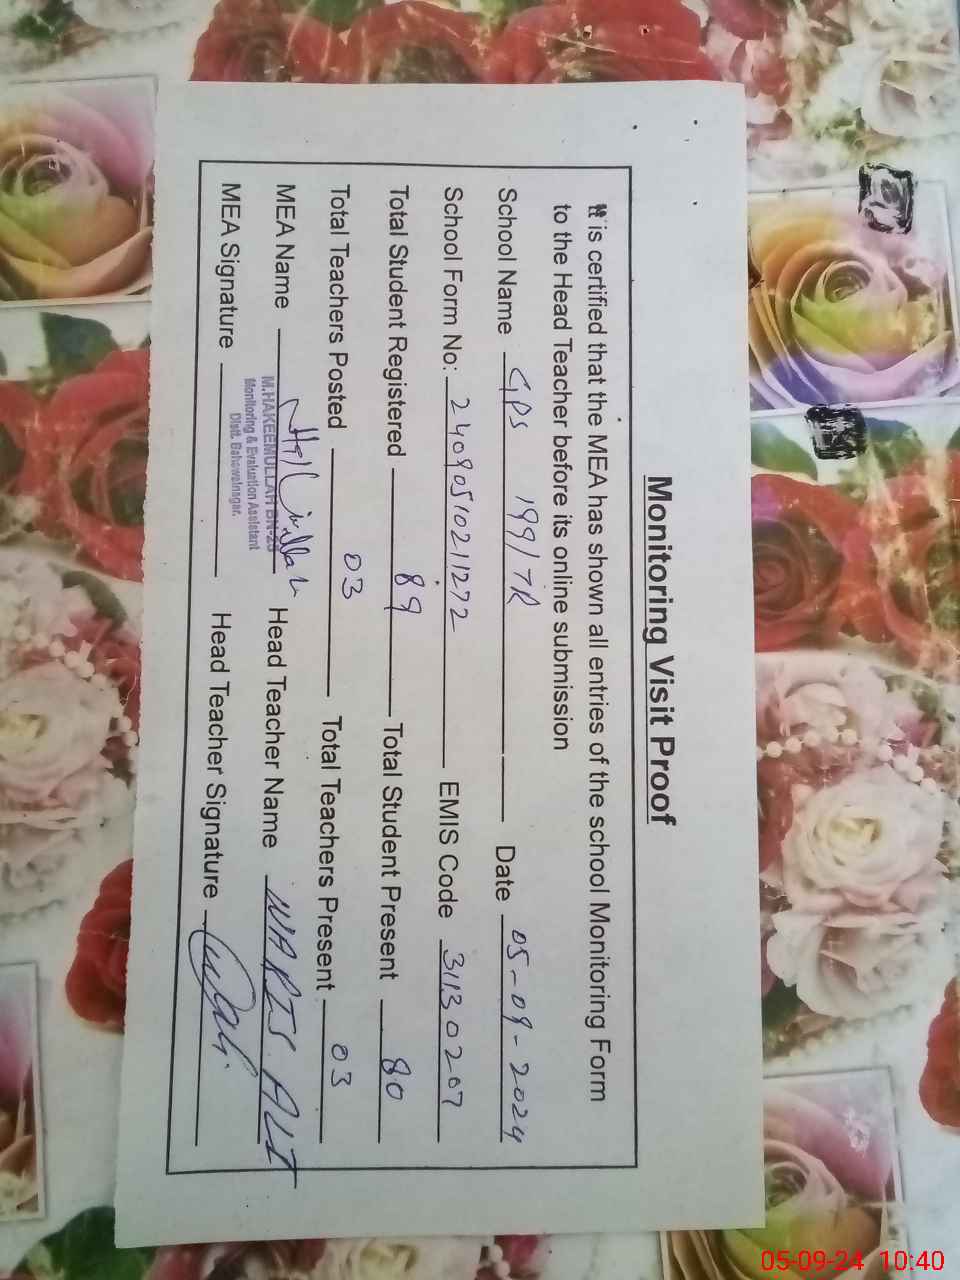 Monitoring Visit Proof
It is certified that the MEA has shown all entries of the school Monitoring Form
to the Head Teacher before its online submission
School Name GPS 199/7R Date 05-09-2024
School Form No: 24090510211272 EMIS Code 31130207
Total Student Registered 89 Total Student Present 80
Total Teachers Posted 03 Total Teachers Present 03
MEA Name Head Teacher Name WARIS ALI
M.HAKEEMULLAH BN-28
Monitoring & Evaluation Assistant
Distt. Bahawalnagar.
MEA Signature Head Teacher Signature
05-09-24 10:40